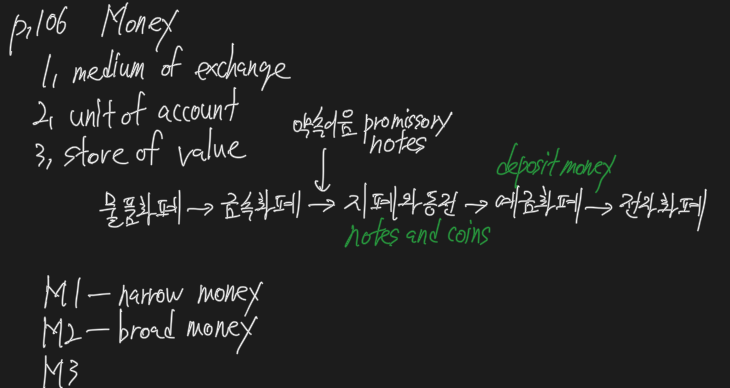 p.106 Money
1. medium of exchange
2. unit of account
3. store of value
약속어음 promissory
notes
deposit money
물품화폐 → 금속화폐 → 지폐와 동전 → 예금화폐 → 전자화폐
notes and coins
M1 — narrow money
M2 — broad money
M3